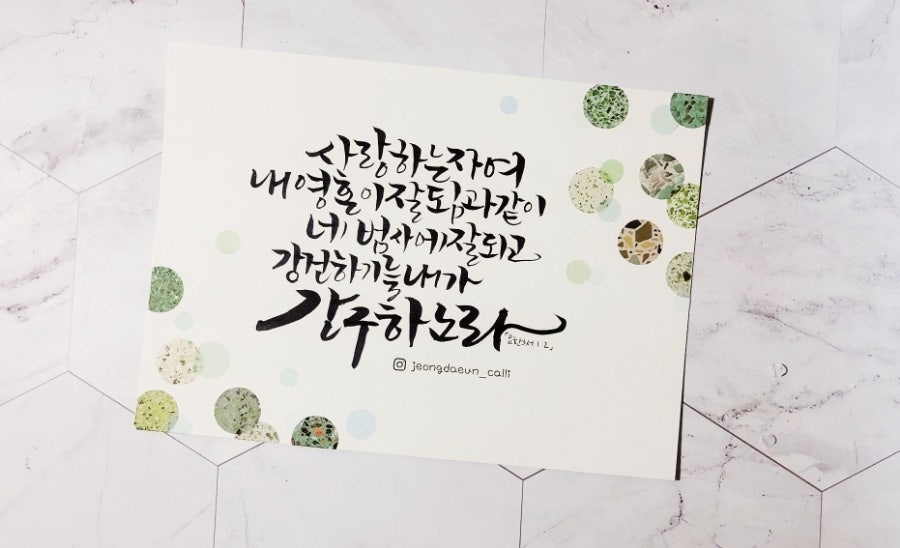 사랑하는자여
내 영혼이잘됨과같이
네 범사에잘되고
강건하기를내가
간구하노라 「요한3서 1:2」
jeongdaeun_calli